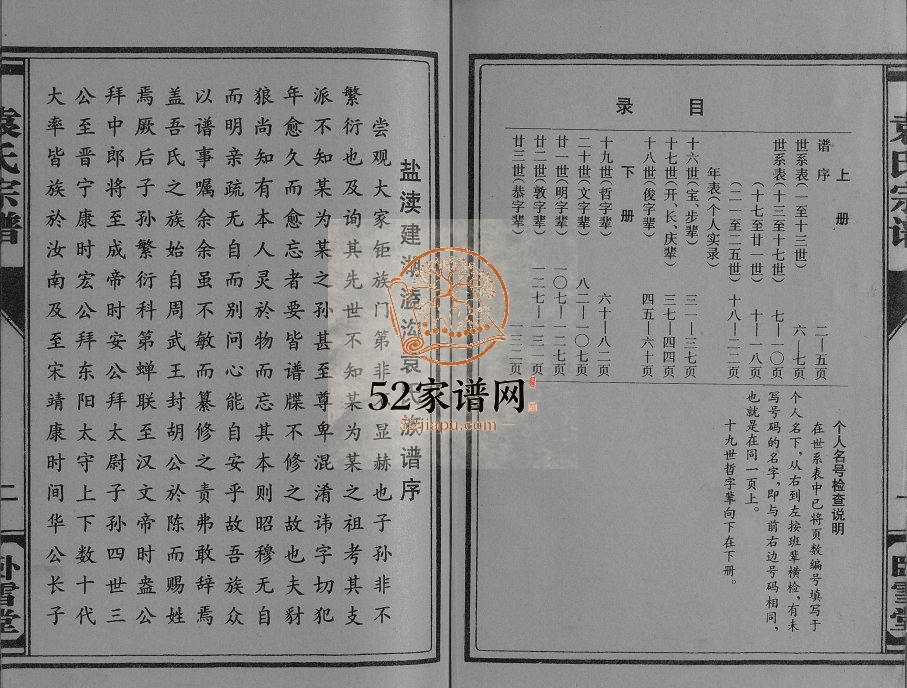 目录
上册
谱序 二—五页
世系表(一至十三世) 六—七页
世系表(十三至十七世) 七—一〇页
(十七至廿一世) 十—一八页
(二一至二五世) 十八—二二页
年表(个人实录)
十六世(宝、步辈) 三一—三七页
十七世(开、长、庆辈) 三七—四四页
十八世(俊字辈) 四五—六十页
下册
十九世(哲字辈) 六十—八二页
二十世(文字辈) 八二—一〇七页
廿一世(明字辈) 一〇七—一二七页
廿二世(敦字辈) 一二七—一三一页
廿三世(恭字辈) 一三二页
个人名号检查说明
在世系表中已将页数编号填写于
个人名下,从右到左按班辈横检,有未
写号码的名字,即与前右边号码相同,
也就是在同一页上。
十九世哲字辈向下在下册。
袁氏宗谱
一
卧雪堂
盐渎建湖湓沟袁氏族谱序
尝观大家钜族门第非不显赫也子孙非不
繁衍也及询其先世不知某为某之祖考其支
派不知某为某之孙甚至尊卑混淆讳字切犯
年愈久而愈忘者要皆谱牒不修之故也夫豺
狼尚知有本人灵於物而忘其本则昭穆无自
而明亲疏无自而别问心能自安乎故吾族众
以谱事嘱余余虽不敏而纂修之责弗敢辞焉
盖吾氏之族始自周武王封胡公於陈而赐姓
焉厥后子孙繁衍科第蝉联至汉文帝时盎公
拜中郎将至成帝时安公拜太尉子孙四世三
公至晋宁康时宏公拜东阳太守上下数十代
大率皆族於汝南及至宋靖康时间华公长子
袁氏宗谱
二
卧雪堂
52家谱网
52jiapu.com